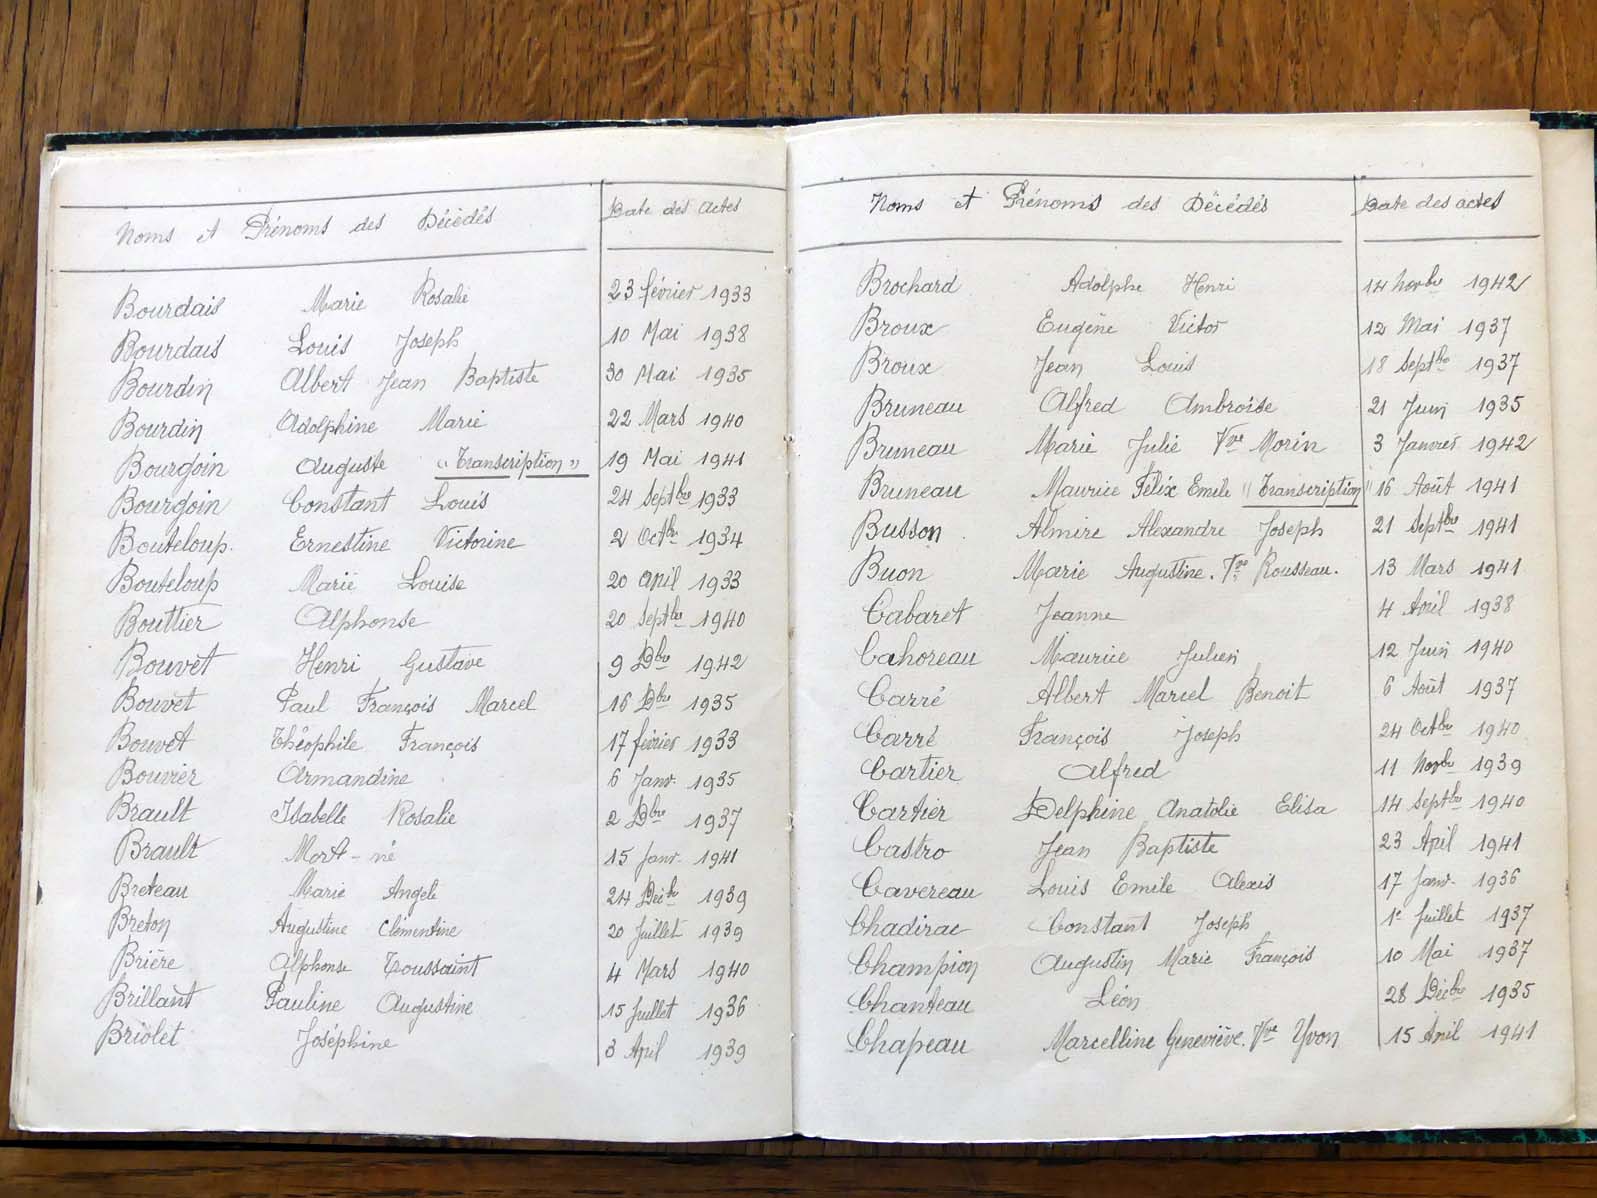 Noms et Prénoms des Décédés Date des actes
Bourdais Marie Rosalie 23 février 1933
Bourdais Louis Joseph 10 Mai 1938
Bourdin Albert Jean Baptiste 30 Mai 1935
Bourdin Adolphine Marie 22 Mars 1940
Bourgoin Auguste "Transcription" 19 Mai 1941
Bourgoin Constant Louis 24 Septbre 1933
Bouteloup. Ernestine Victorine 2 Octbre 1934
Bouteloup Marie Louise 20 april 1933
Bouttier Alphonse 20 Septbre 1940
Bouvet Henri Gustave 9 Dbre 1942
Bouvet Paul François Marcel 16 Dbre 1935
Bouvet Théophile François 17 février 1933
Bouvier Armandine 6 Janv. 1935
Brault Isabelle Rosalie 2 Dbre 1937
Brault Mort-né 15 Janv. 1941
Breteau Marie Angele 24 Decbre 1939
Breton Augustine Clémentine 20 Juillet 1939
Brière Alphonse Toussaint 4 Mars 1940
Brillant Pauline Augustine 15 Juillet 1936
Briolet Joséphine 3 April 1939
Noms et Prénoms des Décédés Date des actes
Brochard Adolphe Henri 14 Novbre 1942
Broux Eugène Victor 12 Mai 1937
Broux Jean Louis 18 Septbre 1937
Bruneau Alfred Ambroise 21 Juin 1935
Bruneau Marie Julie Vve Morin 3 Janvier 1942
Bruneau Maurice Félix Emile "Transcription" 16 Août 1941
Busson Almire Alexandre Joseph 21 Septbre 1941
Buon Marie Augustine. Vve Rousseau. 13 Mars 1941
Cabaret Jeanne 4 Avril 1938
Cahoreau Maurice Julien 12 Juin 1940
Carré Albert Marcel Benoit 6 Août 1937
Carré François Joseph 24 Octbre 1940
Cartier Alfred 11 Novbre 1939
Cartier Delphine Anatolie Elisa 14 Septbre 1940
Castro Jean Baptiste 23 April 1941
Cavereau Louis Emile Alexis 17 Janv. 1936
Chadirac Constant Joseph 1e Juillet 1937
Champion Augustin Marie François 10 Mai 1937
Chanteau Léon 28 Décbre 1935
Chapeau Marcelline Geneviève. Vve Yvon 15 Avril 1941